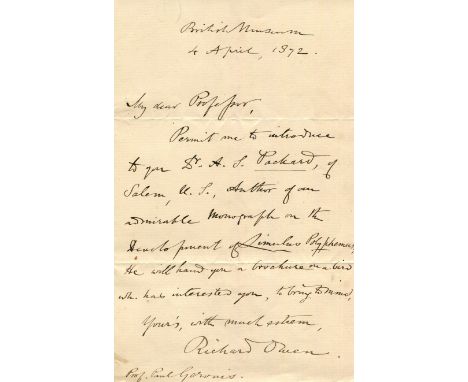 British Museum
4 April, 1872.
My dear Professor,
Permit me to introduce
to you Dr. A. S. Packard, of
Salem, U. S., Author of an
admirable Monograph on the
Development of Limulus Polyphemus,
He will hand you a brochure on a bird
wh. has interested you, to bring to me,
Your's, with much esteem,
Richard Owen.
Prof. Paul Gervais.